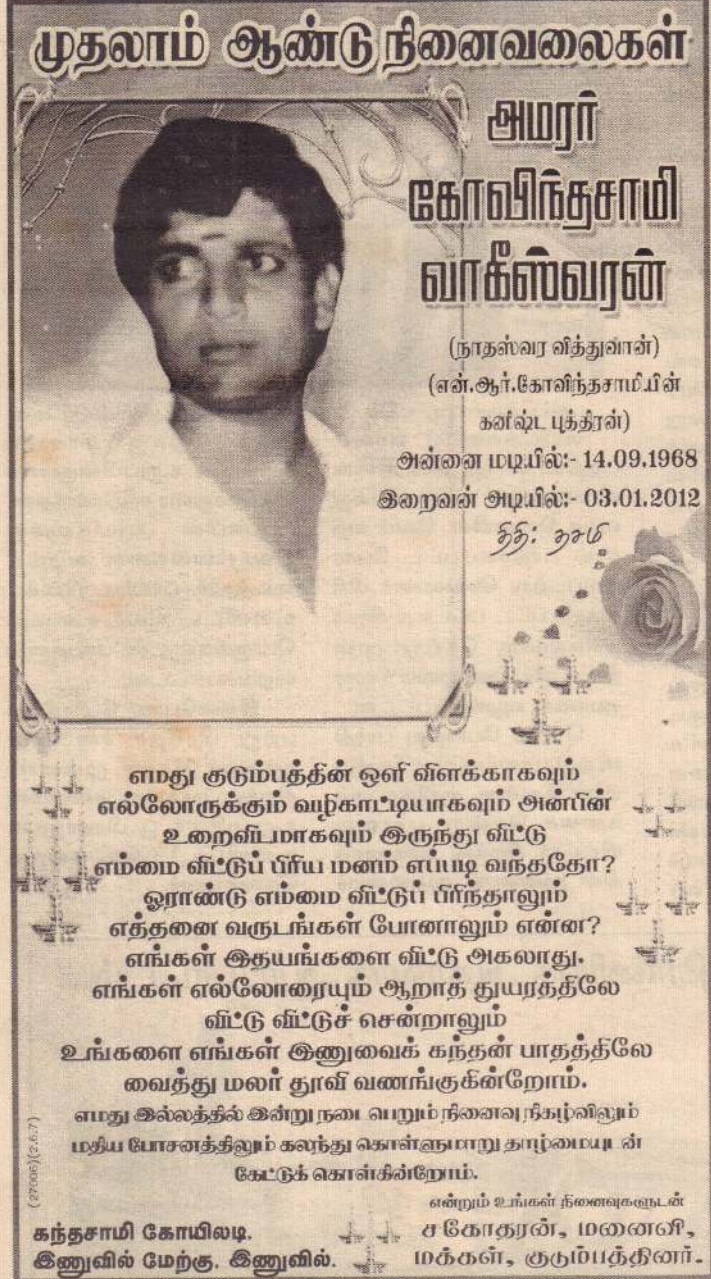 முதலாம் ஆண்டு நினைவலைகள்
அமரர்
கோவிந்தசாமி
வாகீஸ்வரன்
(நாதஸ்வர வித்துவான்)
(என்.ஆர்.கோவிந்தசாமியின்
கனிஷ்ட புத்திரன்)
அன்னை மடியில்:- 14.09.1968
இறைவன் அடியில்:- 03.01.2012
திதி: தசமி
எமது குடும்பத்தின் ஒளி விளக்காகவும்
எல்லோருக்கும் வழிகாட்டியாகவும் அன்பின்
உறைவிடமாகவும் இருந்து விட்டு
எம்மை விட்டுப் பிரிய மனம் எப்படி வந்ததோ?
ஓராண்டு எம்மை விட்டுப் பிரிந்தாலும்
எத்தனை வருடங்கள் போனாலும் என்ன?
எங்கள் இதயங்களை விட்டு அகலாது.
எங்கள் எல்லோரையும் ஆறாத் துயரத்திலே
விட்டு விட்டுச் சென்றாலும்
உங்களை எங்கள் இணுவைக் கந்தன் பாதத்திலே
வைத்து மலர் தூவி வணங்குகின்றோம்.
எமது இல்லத்தில் இன்று நடை பெறும் நினைவு நிகழ்விலும்
மதிய போசனத்திலும் கலந்து கொள்ளுமாறு தாழ்மையுடன்
கேட்டுக் கொள்கின்றோம்.
(27006)(2.6.7)
என்றும் உங்கள் நினைவுகளுடன்
சகோதரன், மனைவி,
மக்கள், குடும்பத்தினர்.
கந்தசாமி கோயிலடி.
இணுவில் மேற்கு. இணுவில்.